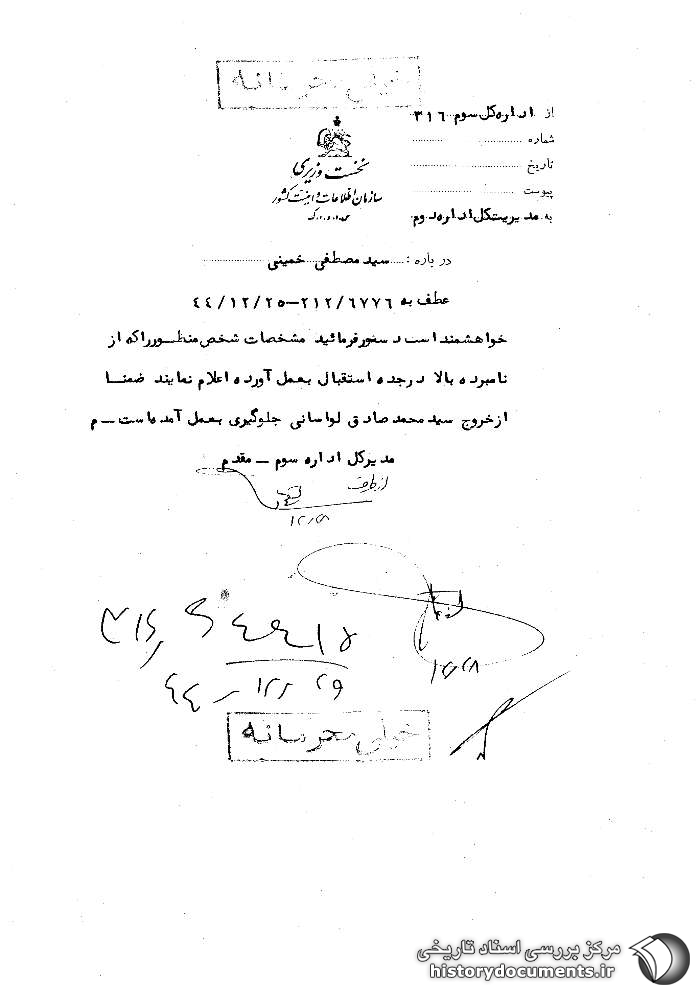 خیلی محرمانه
از اداره کل سوم ۳۱۶
شماره
تاریخ
پیوست
به مدیریت کل اداره دوم
نخست وزیری
سازمان اطلاعات و امنیت کشور
س.ا.و.ا.ک
درباره : سید مصطفی خمینی
عطف به ۲۱۲/۶۷۷۶-۴۴/۱۲/۲۵
خواهشمند است دستور فرمائید مشخصات شخص منظور را که از
نامبرده بالا در جده استقبال بعمل آورده اعلام نمایند ضمنا
از خروج سید محمد صادق لواسانی جلوگیری بعمل آمده است - م
مدیر کل اداره سوم - مقدم
از طرف
۱۲/۲۸
۱۲/۲۸
۴۴ - ۱۲/۲۹
خیلی محرمانه
مرکز بررسی اسناد تاریخی
historydocuments.ir